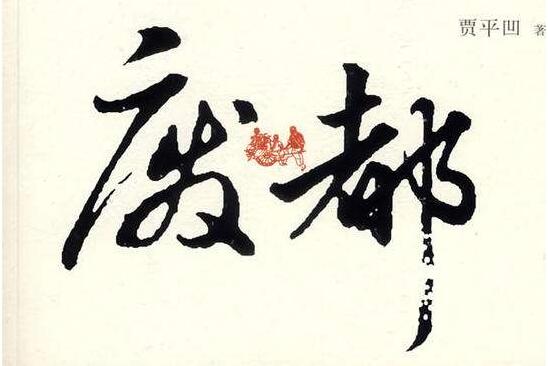 贾平凹 著
废都